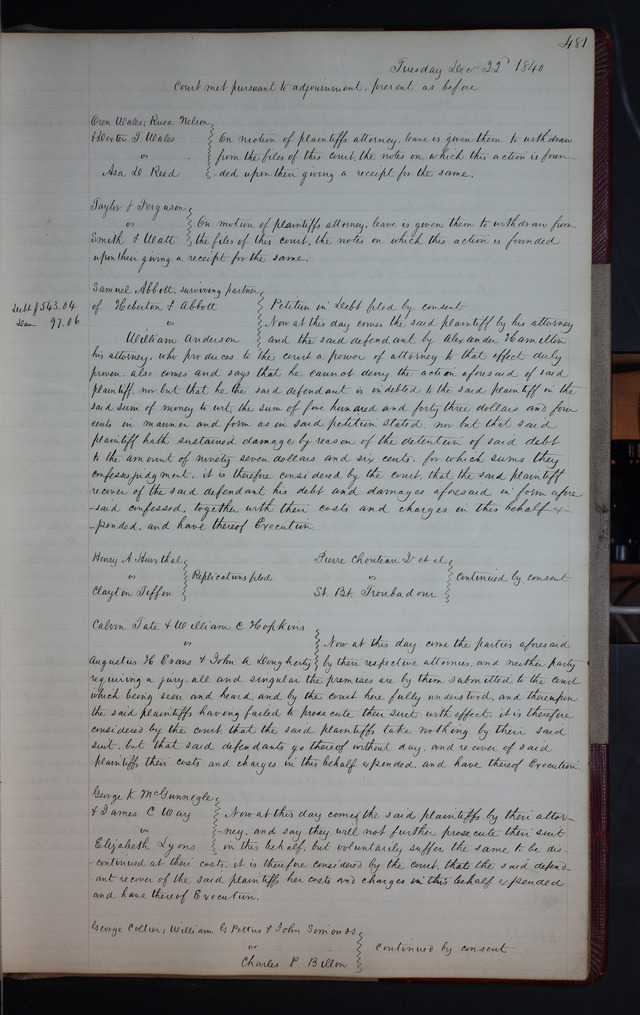 481
Tuesday Decr 22d 1840
Court met pursuant to adjournment. present as before
Oren Wales, Rufa Nelson
& Dexter J Wales
vs
Asa D Reed
On motion of plaintiffs attorney. leave is given them to withdraw
from the files of this court, the notes on which this action is foun-
ded upon their giving a receipt for the same.
Taylor & Ferguson
vs
Smith & Watt
On motion of plaintiffs attorney. leave is given them to withdraw from
the files of this court, the notes on which this action is founded
upon their giving a receipt for the same.
Debt $543.04
Dam 97.06
Samuel Abbott, surviving partner
of Heberton & Abbott
vs
William Anderson
Petition in Debt filed by consent
Now at this day comes the said plaintiff by his attorney
and the said defendant by Alexander Hamilton
his attorney. who produces to the court a power of attorney to that effect duly
proven. also comes and says that he cannot deny the action aforesaid of said
plaintiff, nor but that he the said defendant is indebted to the said plaintiff in the
said sum of money to wit, the sum of five hundred and forty three dollars and four
cents in manner and form as in said petition stated, nor but that said
plaintiff hath sustained damage by reason of the detention of said debt
to the amount of ninety seven dollars and six cents. for which sums they
confess judgment. it is therefore considered by the court, that the said plaintiff
recover of the said defendant his debt and damages aforesaid in form afore
-said confessed, together with their costs and charges in this behalf ex-
-pended, and have thereof Execution.
Henry A
vs
Clayton Tiffin
Replications filed
Pierre Chouteau Jr et al
vs
St. Bt. Troubadour
Continued by consent
Calvin Tate & William C Hopkins
vs
Augustus H Evans & John A Dougherty
Now at this day come the parties aforesaid
by their respective attornies, and neither party
requiring a jury. all and singular the premises are by them submitted to the court
which being seen and heard, and by the court here fully understood, and thereupon
the said plaintiffs having failed to prosecute their suit with effect, it is therefore
considered by the court that the said plaintiffs take nothing by their said
suit. but that said defendants go thereof without day. and recover of said
plaintiffs their costs and charges in this behalf expended. and have thereof Execution
George K McGunnegle
& James C Way
vs
Elizabeth Lyons
Now at this day comes the said plaintiffs by their attor-
-ney. and say they will not further prosecute their suit
in this behalf. but voluntarily suffer the same to be dis-
-continued at their costs. it is therefore considered by the court, that the said defend-
-ant recover of the said plaintiffs her costs and charges in this behalf expended
and have thereof Execution.
George Collier, William G Pettus & John Simonds
vs
Charles P Billon
Continued by consent